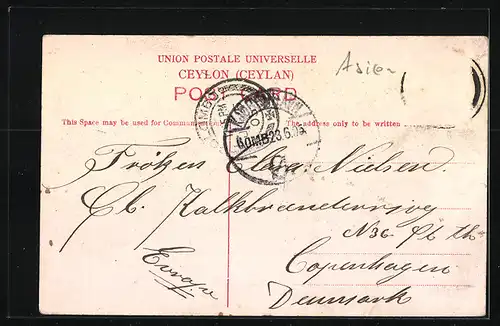 UNION POSTALE UNIVERSELLE
CEYLON (CEYLAN)
POST CARD
Asien
This Space may be used for Communication
The address only to be written
KJØBENHAVN
OMB 23.6.
Frøken Clara Nielsen.
Gl. Kalkbrænderivej
N36
Copenhagen
Europe
Denmark